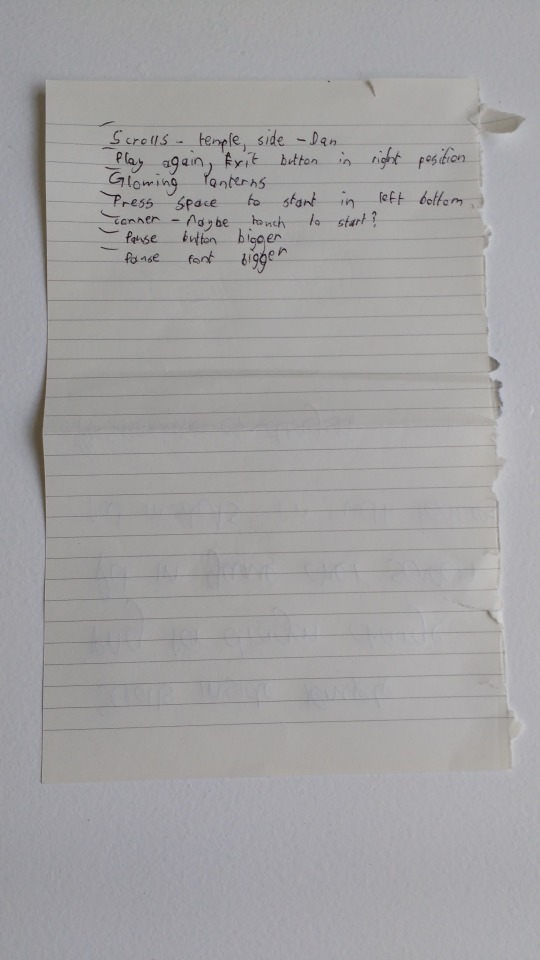 - Scrolls - temple, side - Dan
- Play again, Exit button in right position
- Glowing lanterns
- Press space to start in left bottom
conner - Maybe touch to start?
- Pause button bigger
- Pause font bigger